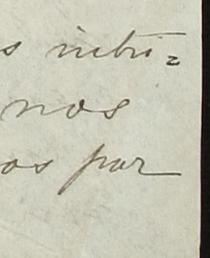 s intri=
nos
os par